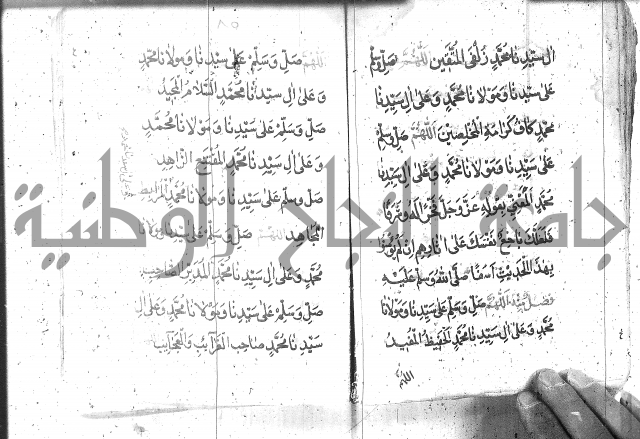 ال سيدنا محمد زلفى المتقين اللهم صل وسلم
على سيدنا ومولانا محمد وعلى ال سيدنا
محمد كاف كرامة المخلصين اللهم صل وسلم
على سيدنا ومولانا محمد وعلى ال سيدنا
محمد المعني بقوله عز وجل
فلعلك باخع نفسك على اثارهم ان لم يؤمنوا
بهذا الحديث اسفا صلى الله وسلم عليه
اللهم صل وسلم على سيدنا ومولانا
محمد وعلى ال سيدنا محمد الحفيظ المفيد
اللهم
اللهم صل وسلم على سيدنا ومولانا محمد
وعلى ال سيدنا محمد المجيد
صل وسلم على سيدنا ومولانا محمد
وعلى ال سيدنا محمد الزاهد
صل وسلم على سيدنا ومولانا محمد المرابط
المجاهد اللهم صل وسلم على سيدنا ومولانا
محمد وعلى ال سيدنا محمد الصاحب
صل وسلم على سيدنا ومولانا محمد وعلى ال
سيدنا محمد صاحب الغرايب والعجايب
جامعة النجاح الوطنية